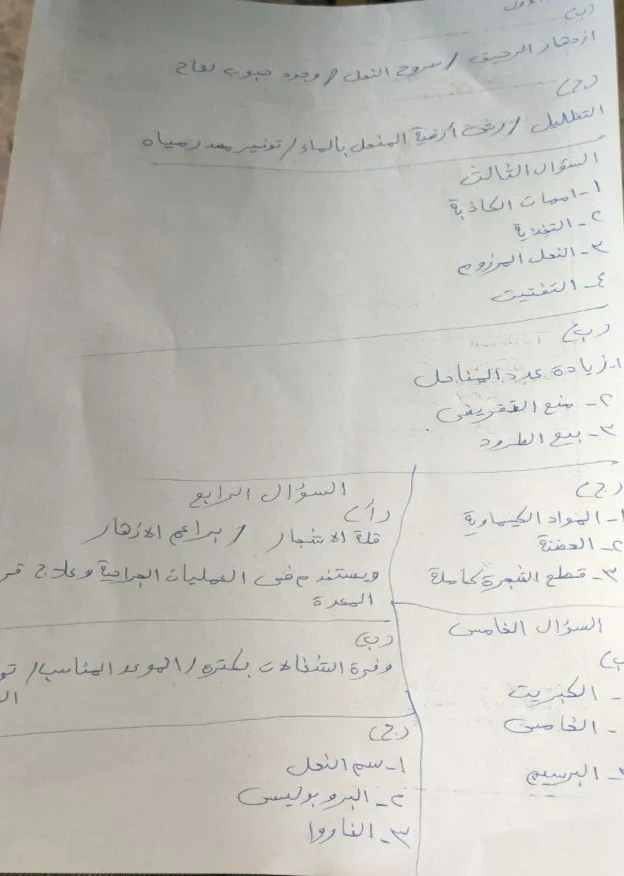 الاول
(ب)
ازدهار الرحيق / سروح النحل / وجود حبوب لقاح
(ج)
التظليل / رش أرضية المنحل بالماء / توفير مصدر مياه
السؤال الثالث
١- امهات الكاذبة
٢- التغذية
٣- النحل المرزوم
٤- التفتيت
(ب)
١- زيادة عدد المناحل
٢- منع التطريد
٣- بيع الطرود
(ج)
١- المواد الكيماوية
٢- العفنة
٣- قطع الشجرة كاملة
السؤال الرابع
(أ)
قلة الاشجار / براعم الازهار
ويستخدم في العمليات الجراحية وعلاج قر
المعدة
(ب)
وفرة الشغالات بكثرة / الموعد المناسب / تو
ال
(ج)
١- سم النحل
٢- البروبوليس
٣- الفاروا
السؤال الخامس
ب)
- الكبريت
- الخامس
- البرسيم